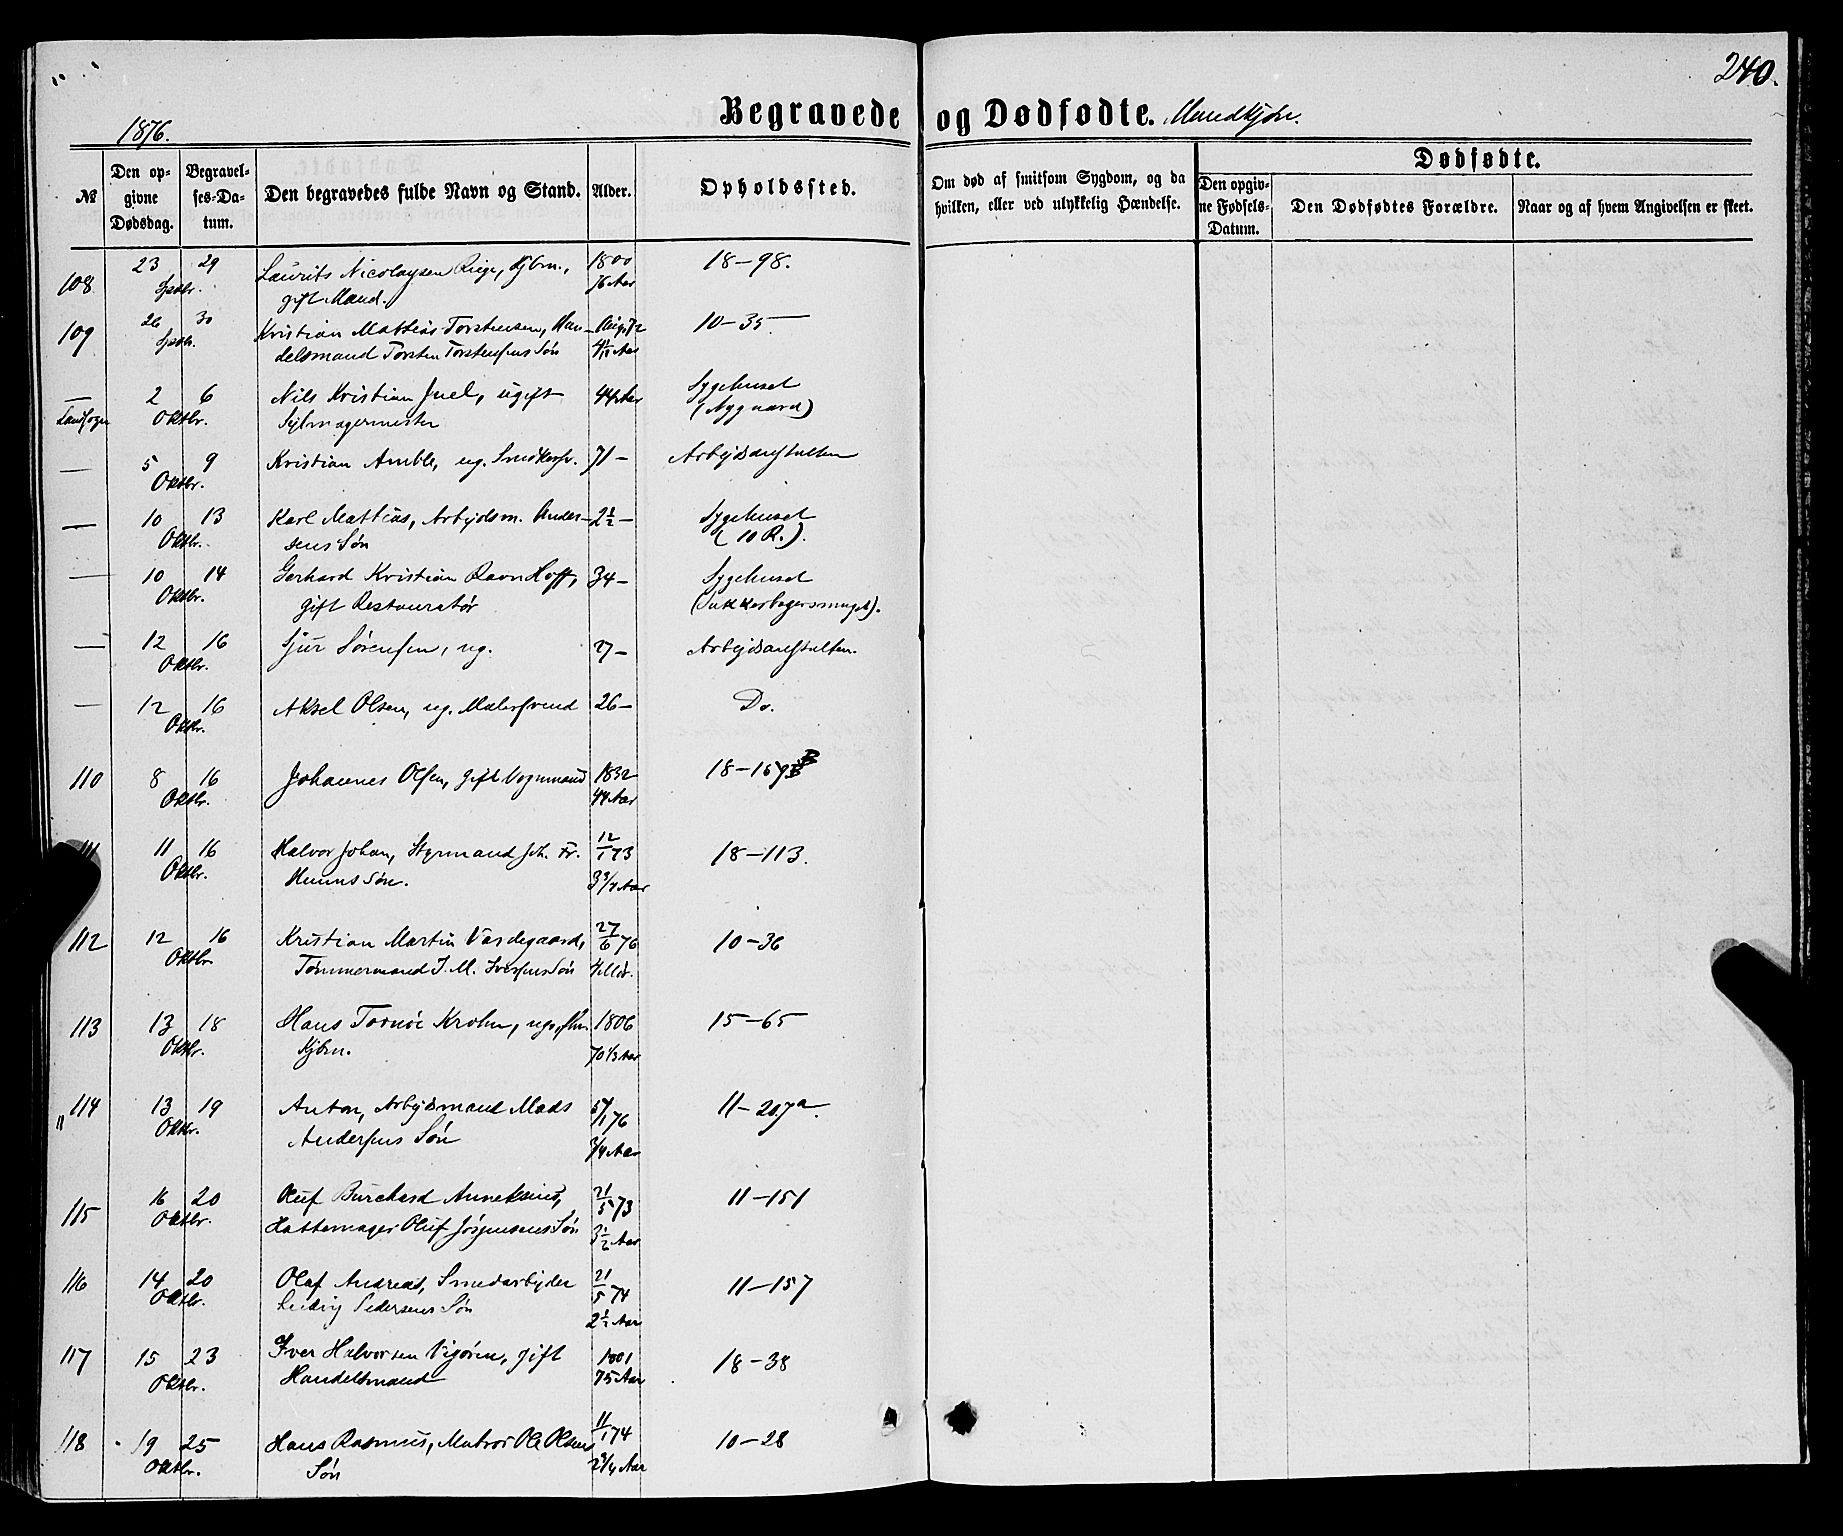 240.
1876.
Begravede og Dødfødte. Mandkjøn.
№
Den op-
givne
Dødsdag.
Begravel-
ses-Da-
tum.
Den begravedes fulde Navn og Stand.
Alder.
Opholdssted.
Om død af smitsom Sygdom, og da
hvilken, eller ved ulykkelig Hændelse.
Dødfødte.
Den opgiv-
ne Fødsels-
Datum.
Den Dødfødtes Forældre.
Naar og af hvem Angivelsen er skeet.
108 23 29 Laurits Nicolaysen, Kjbm., 1800 18-98.
Septbr. gift Mand. 76 Aar
109 26 30 Kristian Mattias Torstensen, Han- Aug. 72 10-35
Septbr. delsmand Torsten Torstensens Søn Aar
— 2 6 Nils Kristian Juel, ugift 44 Aar Sygehuset
Landsogn Oktbr. (Nygaard)
— 5 9 Kristian Amble, ug. 71 - Arbeidsanstalten
Oktbr.
— 10 13 Karl Mattias, Arbejdsm. Ander- 2½ - Sygehuset
Oktbr. sens Søn (10 R.).
— 10 14 Gerhard Kristian Ravn Hoff, 34 - Sygehuset
Oktbr. gift Restauratør (Sukkerbagersmuget).
— 12 16 Sjur Sørensen, ug. 27 - Arbeidsanstalten.
Oktbr.
— 12 16 Aksel Olsen, ug. Malersvend 26 - Do.
Oktbr.
110 8 16 Johannes Olsen, gift Vognmand 1832 18-159 B
Oktbr. 44 Aar
111 11 16 Halvor Johan, Styrmand Joh. Fr. 12/1 73 18-113.
Oktbr. Søn. 3 3/4 Aar
112 12 16 Kristian Martin Vardegaard, 27/6 76 10-36
Oktbr. Tømmermand J. M. Iversens Søn 4 Md.
113 13 18 Hans Tornöe Krohn, ug., 1806 15-65
Oktbr. Kjbm. 70 1/3 Aar
" 114 13 19 Anton, Arbejdsmand Mads /1 76 11-207a.
Oktbr. Andersens Søn 3/4 Aar
115 16 20 Oluf Burchard Annekinus, 21/5 73 11-151
Oktbr. Hattemager Oluf Jørgensens Søn 3½ Aar
116 14 20 Olaf Andreas, Smedarbejder 21/5 74 11-157
Oktbr. Ludvig Pedersens Søn 2½ Aar
117 15 23 Iver Halvorsen Vigøren, gift 1801 18-38
Oktbr. Handelsmand 75 Aar
118 19 25 Hans Rasmus, Matros Ole Olsens 11/1 74 10-28
Oktbr. Søn 2 3/4 Aar